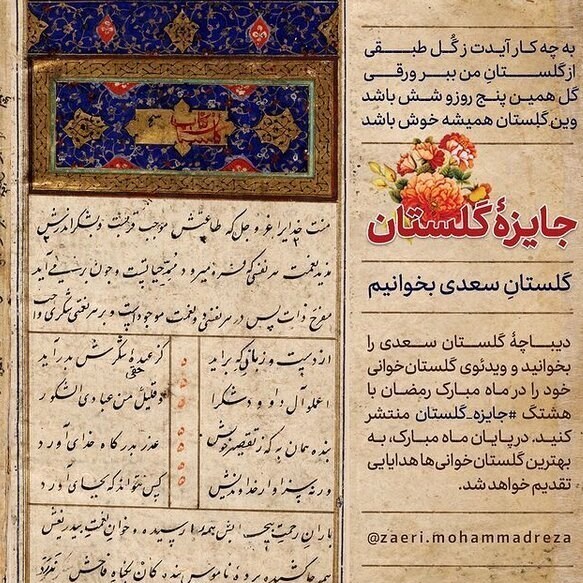 به چه کار آیدت ز گُل طبقی
از گلستانِ من ببر ورقی
گل همین پنج روز و شش باشد
وین گلستان همیشه خوش باشد
جایزهٔ گلستان
گلستانِ سعدی بخوانیم
دیباچهٔ گلستان سعدی را
بخوانید و ویدئوی گلستان‌خوانی
خود را در ماه مبارک رمضان با
هشتگ #جایزه_گلستان منتشر
کنید. در پایان ماه مبارک، به
بهترین گلستان‌خوانی‌ها هدایایی
تقدیم خواهد شد.
@zaeri.mohammadreza
منت خدایرا عز و جل که طاعتش موجب قربتست و بشکر اندرش
مزید نعمت هر نفسی که فرو میرود ممد حیاتست و چون برمی آید
مفرح ذات پس در هر نفسی دو نعمت موجود است و بر هر نعمتی شکری واجب
از دست و زبان که برآید
کز عهده شکرش بدر آید
اعملو آل داود شکرا
و قلیل من عبادی الشکور
بنده همان به که ز تقصیر خویش
عذر بدرگاه خدای آورد
ورنه سزاوار خداوندیش
کس نتواند که بجای آورد
باران رحمت بیحسابش همه را رسیده و خوان نعمت بیدریغش
همه جا کشیده پرده ناموس بندگان بگناه فاحش ندرد